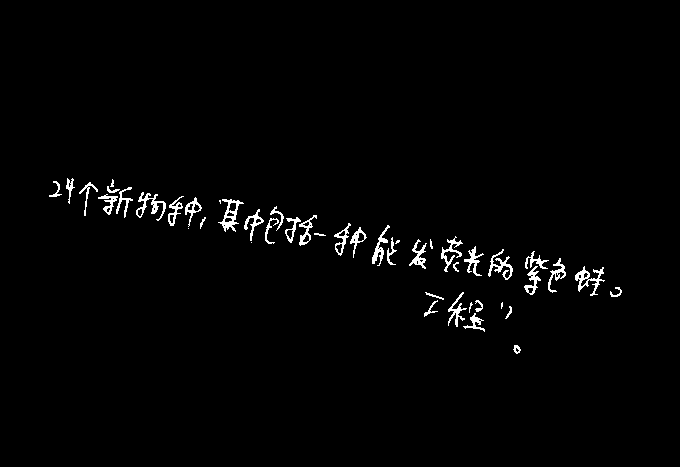 24个新物种,其中包括一种能发荧光的紫色蛙。
工程”。